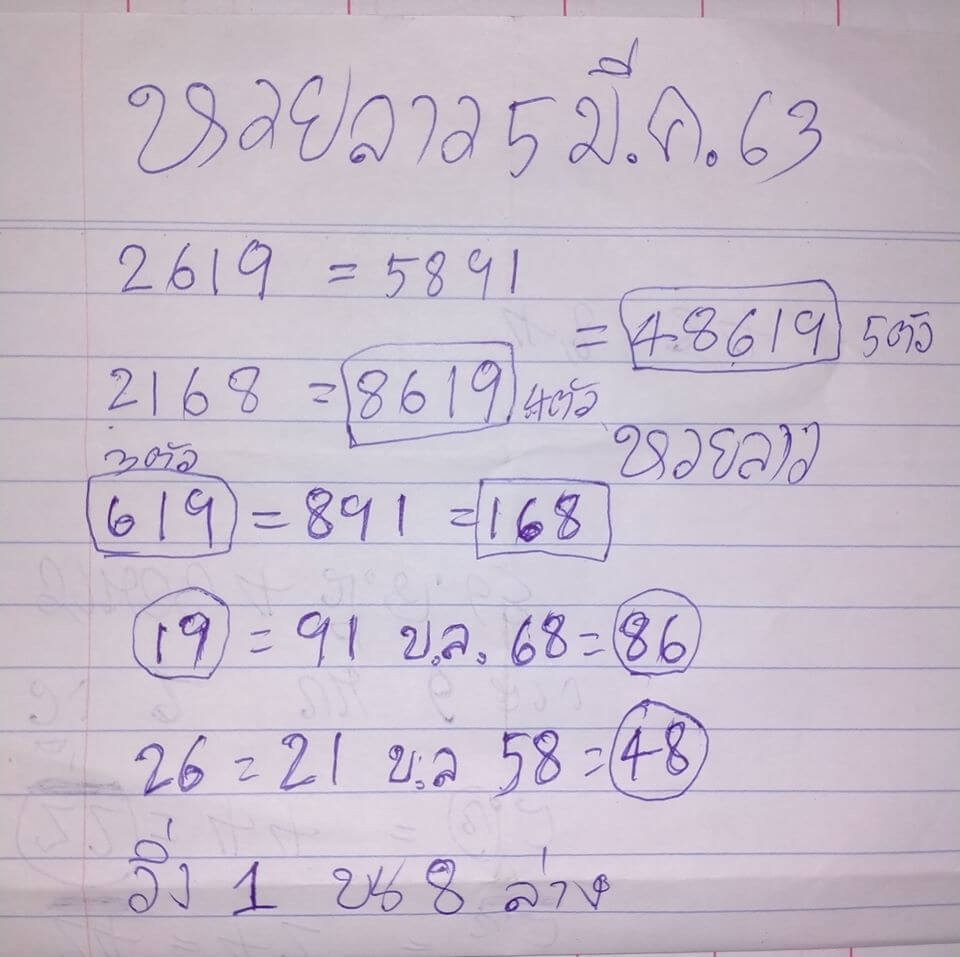 หวยลาว 5 มี.ค.63
2619 = 5891
= 48619 5ตัว
2168 = 8619 4ตัว
หวยลาว
3ตัว
619 = 891 = 168
19 = 91 บ.ล. 68 = 86
26 = 21 บ.ล 58 = 48
วิ่ง 1 บน 8 ล่าง